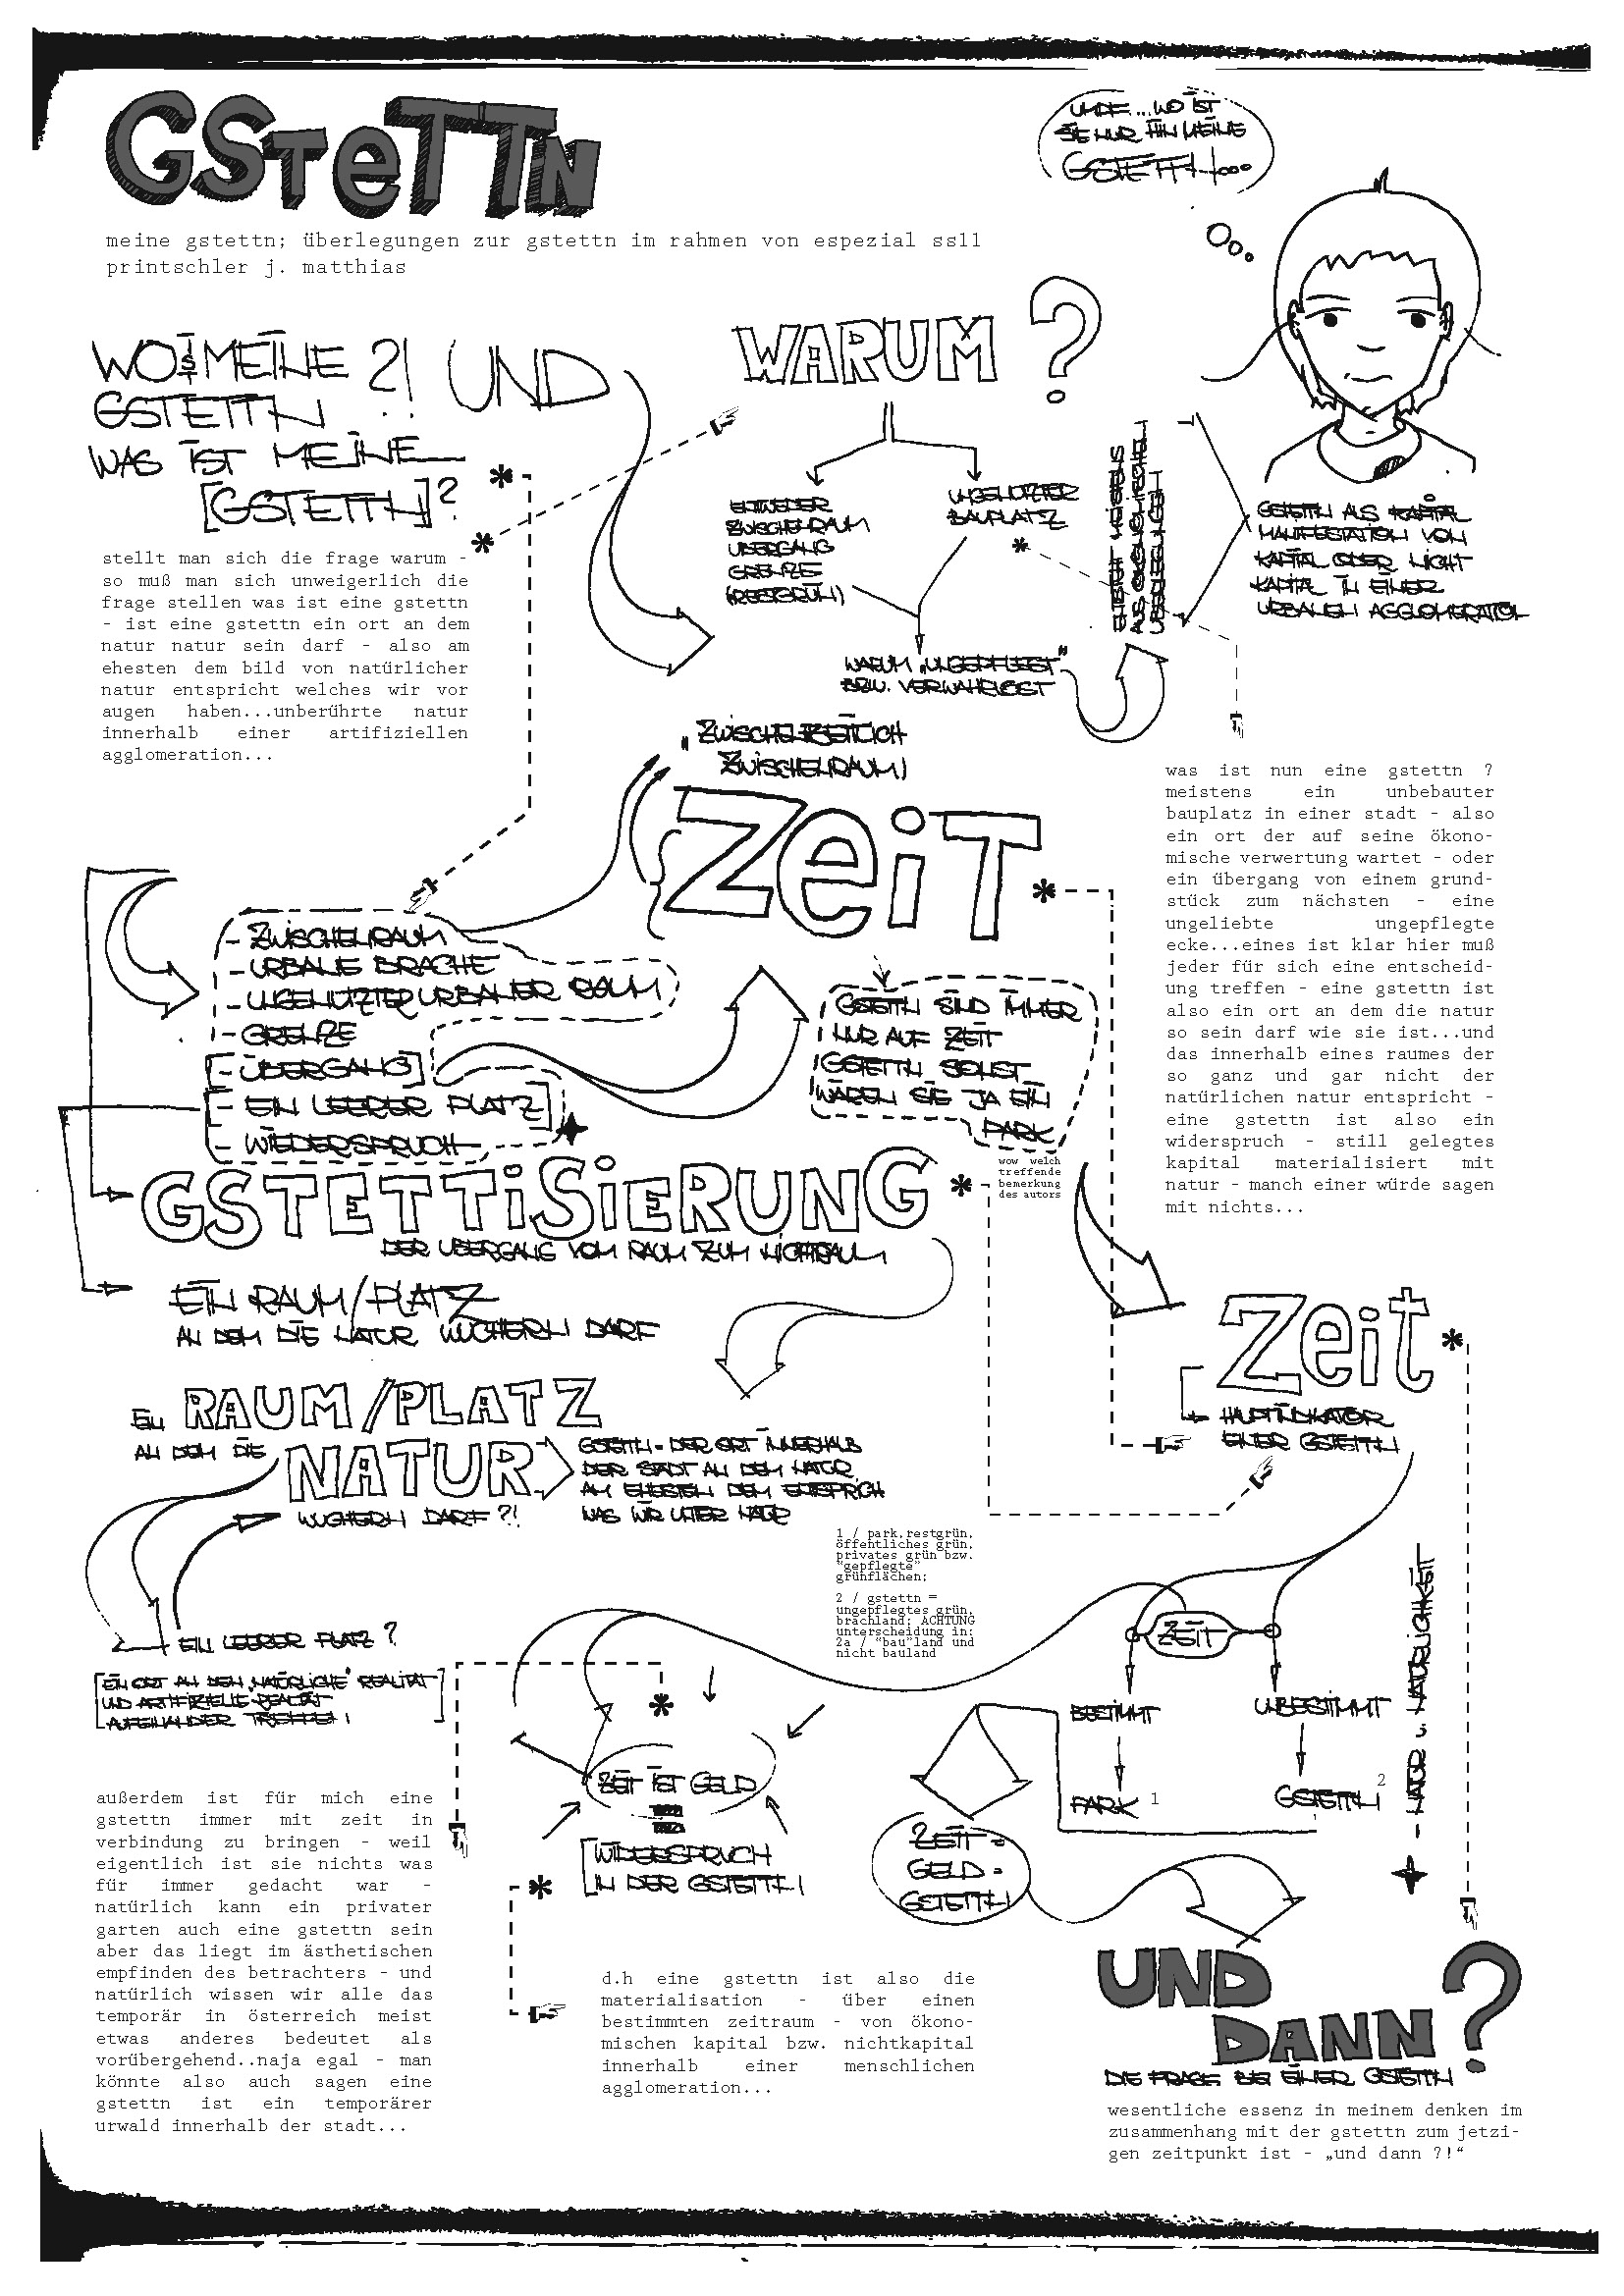 GSTeTTN
meine gstettn; überlegungen zur gstettn im rahmen von espezial ss11
printschler j. matthias
UNDE...WO IST
SIE NUR HIN MEINE
GSTETTN...
WO IST MEINE ?! UND
GSTETTN
WAS IST MEINE
[GSTETTN]?
stellt man sich die frage warum -
so muß man sich unweigerlich die
frage stellen was ist eine gstettn
- ist eine gstettn ein ort an dem
natur natur sein darf - also am
ehesten dem bild von natürlicher
natur entspricht welches wir vor
augen haben...unberührte natur
innerhalb einer artifiziellen
agglomeration...
WARUM ?
ENTWEDER
ZWISCHENRAUM
ÜBERGANG
GRENZE
(RESTGRÜN)
UNGENUTZTER
BAUPLATZ
WARUM „UNGEPFLEGT"
BZW. VERWAHRLOST
ENTSTEHT MEISTENS
AUS ÖKONOMISCHEN
ÜBERLEGUNGEN
GSTETTN ALS KAPITAL
MANIFESTATION VON
KAPITAL ODER NICHT
KAPITAL IN EINER
URBANEN AGGLOMERATION
was ist nun eine gstettn ?
meistens ein unbebauter
bauplatz in einer stadt - also
ein ort der auf seine ökono-
mische verwertung wartet - oder
ein übergang von einem grund-
stück zum nächsten - eine
ungeliebte ungepflegte
ecke...eines ist klar hier muß
jeder für sich eine entscheid-
ung treffen - eine gstettn ist
also ein ort an dem die natur
so sein darf wie sie ist...und
das innerhalb eines raumes der
so ganz und gar nicht der
natürlichen natur entspricht -
eine gstettn ist also ein
widerspruch - still gelegtes
kapital materialisiert mit
natur - manch einer würde sagen
mit nichts...
„ZWISCHENZEITLICH
ZWISCHENRAUM)
ZeiT
- ZWISCHENRAUM
- URBANE BRACHE
- UNGENUTZTER URBANER RAUM
- GRENZE
[- ÜBERGANG]
[- EIN LEERER PLATZ]
- WIEDERSPRUCH
GSTETTN SIND IMMER
NUR AUF ZEIT
GSTETTN SONST
WÄREN SIE JA EIN
PARK
wow welch
treffende
bemerkung
des autors
GSTETTiSiERUNG
DER ÜBERGANG VOM RAUM ZUM NICHTRAUM
EIN RAUM/PLATZ
AN DEM DIE NATUR WUCHERN DARF
EIN RAUM/PLATZ
AN DEM DIE NATUR
WUCHERN DARF ?!
GSTETTN = DER ORT INNERHALB
DER STADT AN DEM NATUR
AM EHESTEN DEM ENTSPRICH
WAS WIR UNTER NATUR
Zeit
HAUPTINDIKATOR
EINER GSTETTN
1 / park,restgrün,
öffentliches grün,
privates grün bzw.
"gepflegte"
grünflächen;
2 / gstettn =
ungepflegtes grün,
brachland; ACHTUNG
unterscheidung in:
2a / "bau"land und
nicht bauland
EIN LEERER PLATZ ?
[EIN ORT AN DEM „NATÜRLICHE" REALITÄT
UND ARTIFIZIELLE REALITÄT
AUFEINANDER TREFFEN]
ZEIT
BESTIMMT
UNBESTIMMT
PARK 1
GSTETTN 2
- NATUR ; NATÜRLICHKEIT
ZEIT IST GELD
[WIDERSPRUCH
IN DER GSTETTN]
ZEIT =
GELD =
GSTETTN
außerdem ist für mich eine
gstettn immer mit zeit in
verbindung zu bringen - weil
eigentlich ist sie nichts was
für immer gedacht war -
natürlich kann ein privater
garten auch eine gstettn sein
aber das liegt im ästhetischen
empfinden des betrachters - und
natürlich wissen wir alle das
temporär in österreich meist
etwas anderes bedeutet als
vorübergehend..naja egal - man
könnte also auch sagen eine
gstettn ist ein temporärer
urwald innerhalb der stadt...
d.h eine gstettn ist also die
materialisation - über einen
bestimmten zeitraum - von ökono-
mischen kapital bzw. nichtkapital
innerhalb einer menschlichen
agglomeration...
UND
DANN ?
DIE FRAGE BEI EINER GSTETTN
wesentliche essenz in meinem denken im
zusammenhang mit der gstettn zum jetzi-
gen zeitpunkt ist - „und dann ?!“